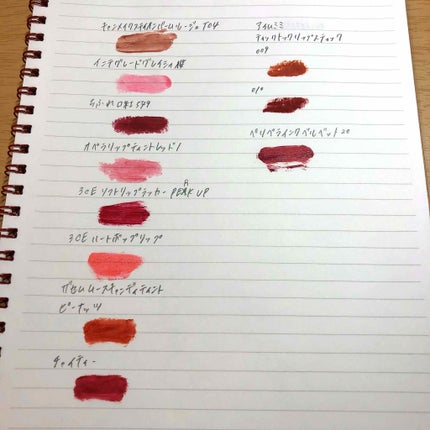 キャンメイクステイオンバームルージュ T04
インテグレートグレイシィ
ちふれ 口紅 549
オペラリップティントレッド1
3CE ソフトリップラッカー PERK UP
3CE ハートポップリップ
ザセム ムースキャンディティント
ピーナッツ
チャイティー
アイムミミ
ティックトックリップスティック
009
010
ペリペラインクベルベット 20